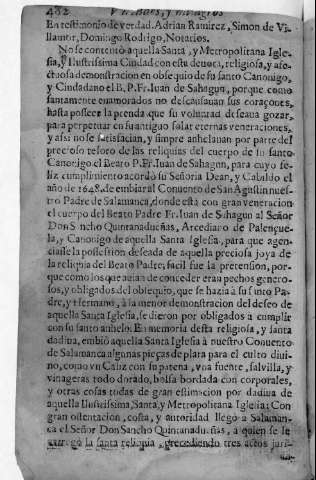 482 Virtudes, y milagros
En testimonio de verdad. Adrian Ramirez, Simon de Vi-
llamor, Domingo Rodrigo, Notarios.
No se contentò aquella Santa, y Metropolitana Igle-
sia, y Ilustrissima Ciudad con esta deuota, religiosa, y afe-
ctuosa demonstracion en obsequio de su santo Canonigo,
y Ciudadano el B. P. Fr. Iuan de Sahagun, porque como
santamente enamorados no descansauan sus coraçones,
hasta posseer la prenda que su voluntad deseaua gozar,
para perpetuar en su antiguo solar eternas veneraciones,
y assi no se satisfacian, y simpre anhelauan por parte del
precioso tesoro de las reliquias del cuerpo de su santo
Canonigo el Beato P. Fr. Iuan de Sahagun, para cuyo fe-
liz cumplimiento acordò su Señoria Dean, y Cabildo el
año de 1648. de embiar al Conuento de San Agustin nues-
tro Padre de Salamanca, donde està con gran veneracion
el cuerpo del Beato Padre Fr. Iuan de Sahagun al Señor
Don Sancho Quintanadueñas, Arcediano de Palençue-
la, y Canonigo de aquella Santa Iglesia, para que agen-
ciasse la possession deseada de aquella preciosa joya de
la reliquia del Beato Padre; facil fue la pretension, por-
que como los que auian de conceder eran pechos genero-
sos, y obligados del obsequio, que se hazia à su santo Pa-
dre, y Hermano, à la menor demonstracion del deseo de
aquella Santa Iglesia, se dieron por obligados à cumplir
con su santo anhelo. En memoria desta religiosa, y santa
dadiua, embiò aquella Santa Iglesia à nuestro Conuento
de Salamanca algunas pieças de plata para el culto diui-
no, como vn Caliz con su patena, vna fuente, salvilla, y
vinageras todo dorado, bolsa bordada con corporales,
y otras cosas todas de gran estimacion por dadiua de
aquella Ilustrissima, Santa y Metropolitana Iglesia: Con
gran ostentacion, costa, y autoridad llegò a Salaman-
ca el Señor Don Sancho Quintanadueñas, a quien se le
entregò la santa reliquia, precediendo tres actos juri-